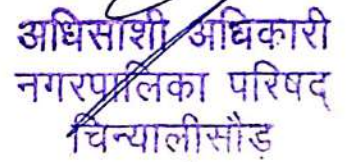 अधिसाशी अधिकारी
नगरपालिका परिषद्
चिन्यालीसौड़